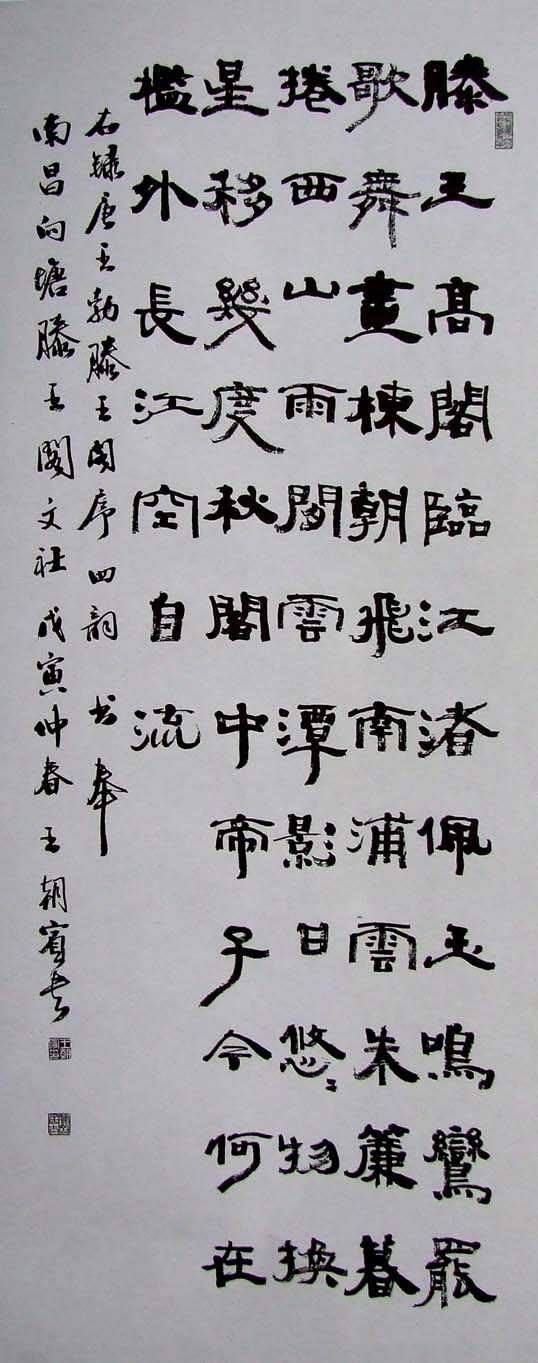 滕王高閣臨江渚佩玉鳴鸞罷
歌舞畫棟朝飛南浦雲朱簾暮
捲西山雨閒雲潭影日悠〻物換
星移幾度秋閣中帝子今何在
檻外長江空自流
右録唐王勃滕王阁序四韵 书奉
南昌向塘滕王閣文社戊寅仲春王朝宾书